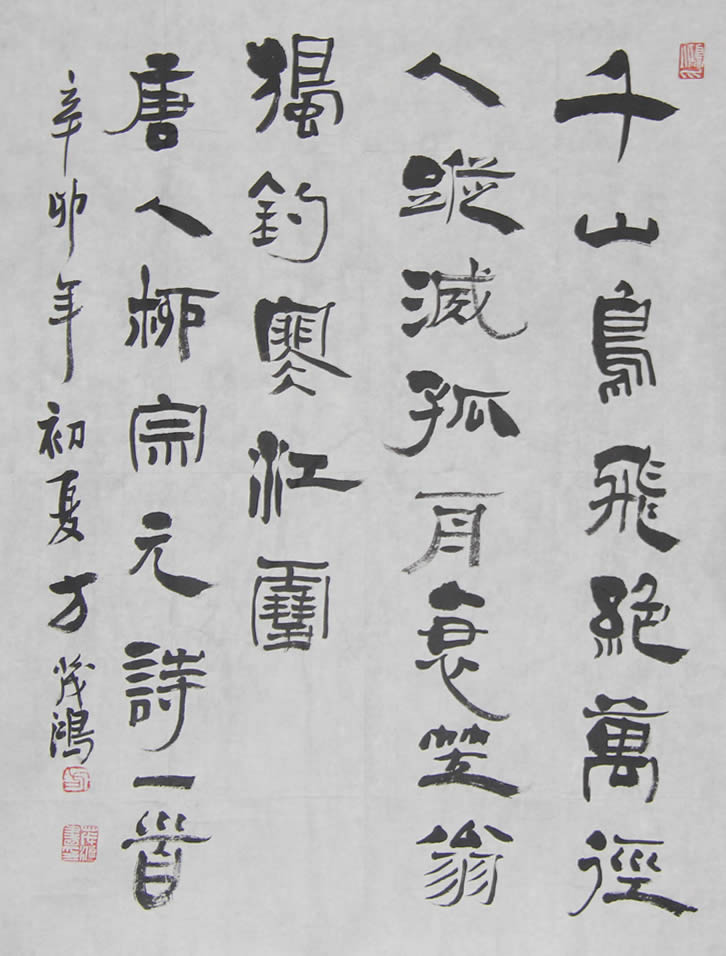 千山鳥飛絕萬徑
人蹤滅孤舟蓑笠翁
獨釣寒江雪
唐人柳宗元詩一首
辛卯年初夏方茂鴻